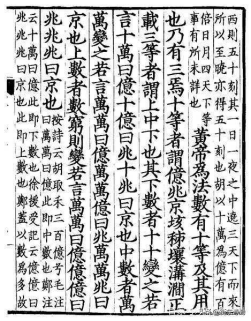 西則五十刻其一日一夜之中遶三天下
所以至晚亦得五十刻也胡以十萬為億有
倍日月四天下等
事有所未詳也
黃帝為法數有十等及其用
也乃有三焉十等者謂億兆京垓秭壤溝澗正
載三等者謂上中下也其下數者十十變之若
言十萬曰億十億曰兆十兆曰京也中數者萬
萬變之若言萬萬曰億萬萬億曰兆萬萬兆曰
京也上數者數窮則變若言萬萬曰億億億曰
兆兆兆曰京也
按詩云胡取禾三百億兮毛注
曰萬萬曰億此即中數也鄭注
云十萬曰億此即下數也徐援受記云億億曰
兆兆兆曰京也此即上數也鄭以數為多故